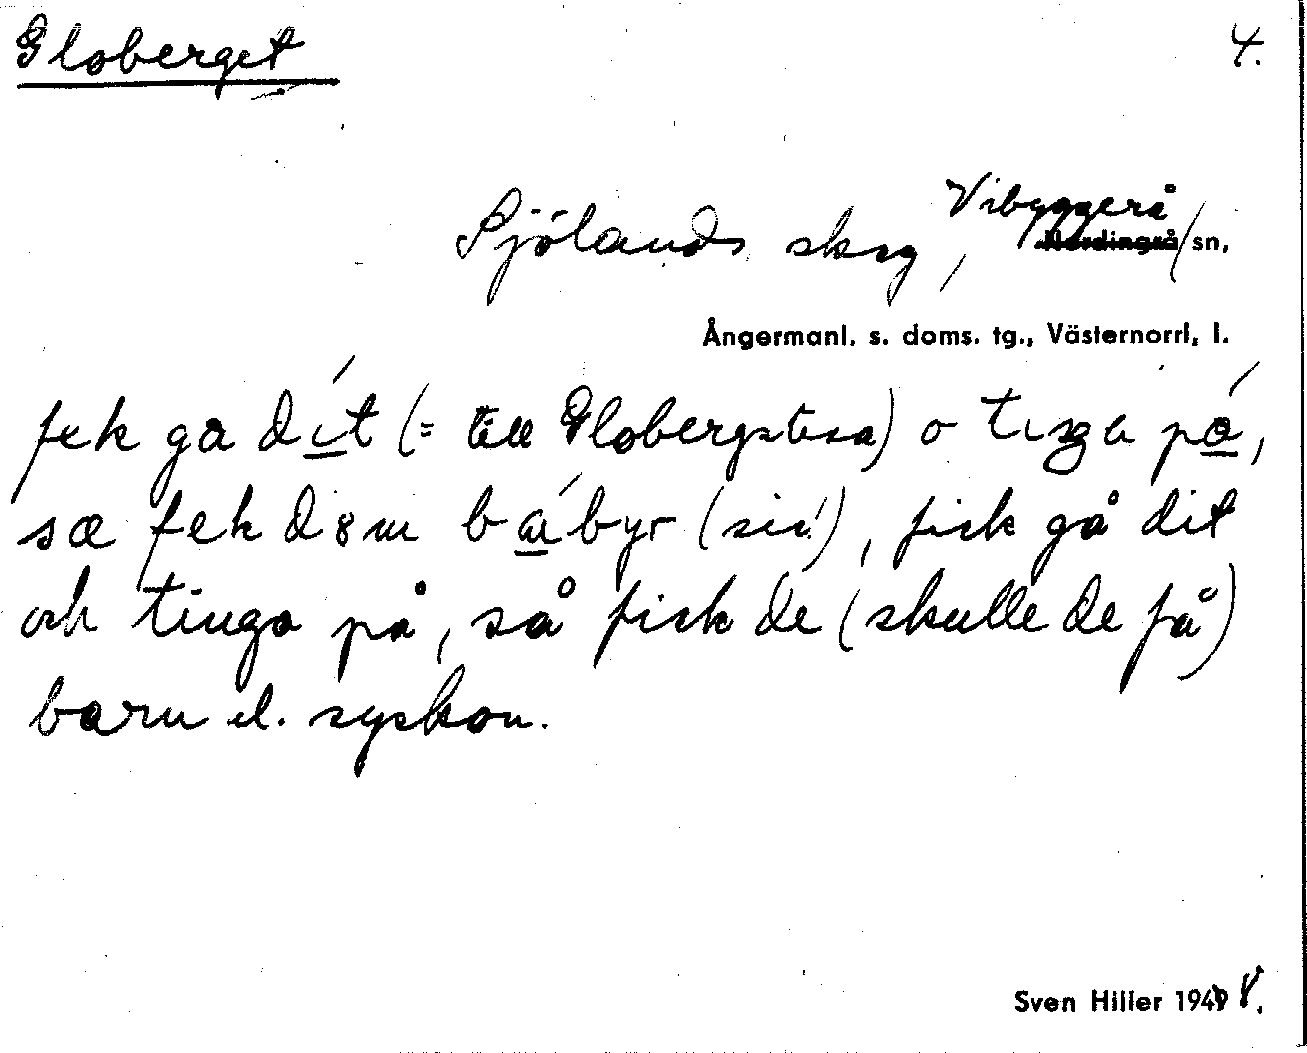 Globerget 4.
Själands skg, Vibyggerå
Nordingrå sn,
Ångermanl. s. doms. tg., Västernorrl, l.
fek ga dít (= till Globergstssa) o tiŋa pá,
sæ fek dɞm bábyr (sic!), fick gå dit
och tinga på, så fick de (skulle de få)
barn el. syskon.
Sven Hilier 1949 8.